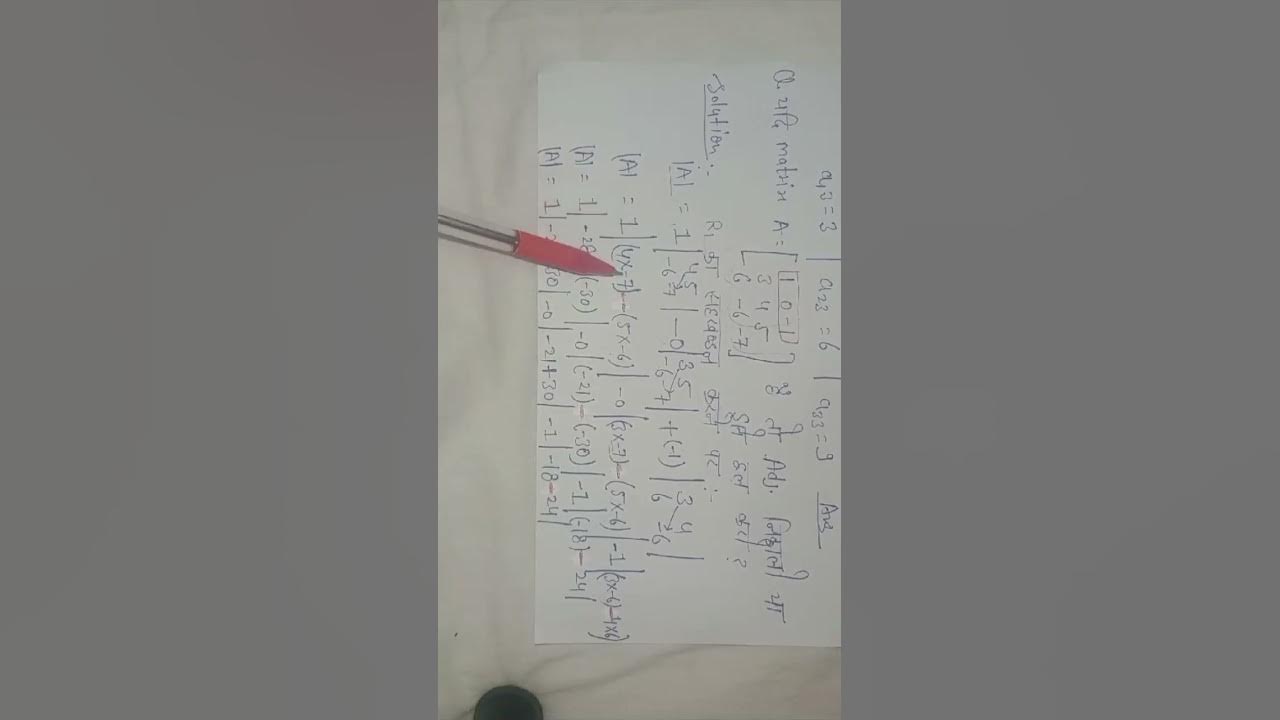 a₁₃ = 3 | a₂₃ = 6 | a₃₃ = 9 Ans
Q. यदि matrix A = [1 0 -1
3 4 5
6 -6 -7] है तो Adj. निकालो या
हल करो ?
Solution :-
R₁ का करने पर :-
|A| = 1 |4 5
-6 -7| - 0 |3 5
-6 -7| + (-1) |3 4
6 -6|
|A| = 1 |(4x-7) - (5x-6)| - 0 |(3x-7) - (5x-6)| - 1 |(3x-6) - 4x6|
|A| = 1 | (-30) | - 0 | (-21) - (-30) | - 1 | (-18) - 24 |
|A| = 1 | - 0 | -21+30 | - 1 | -18-24 |